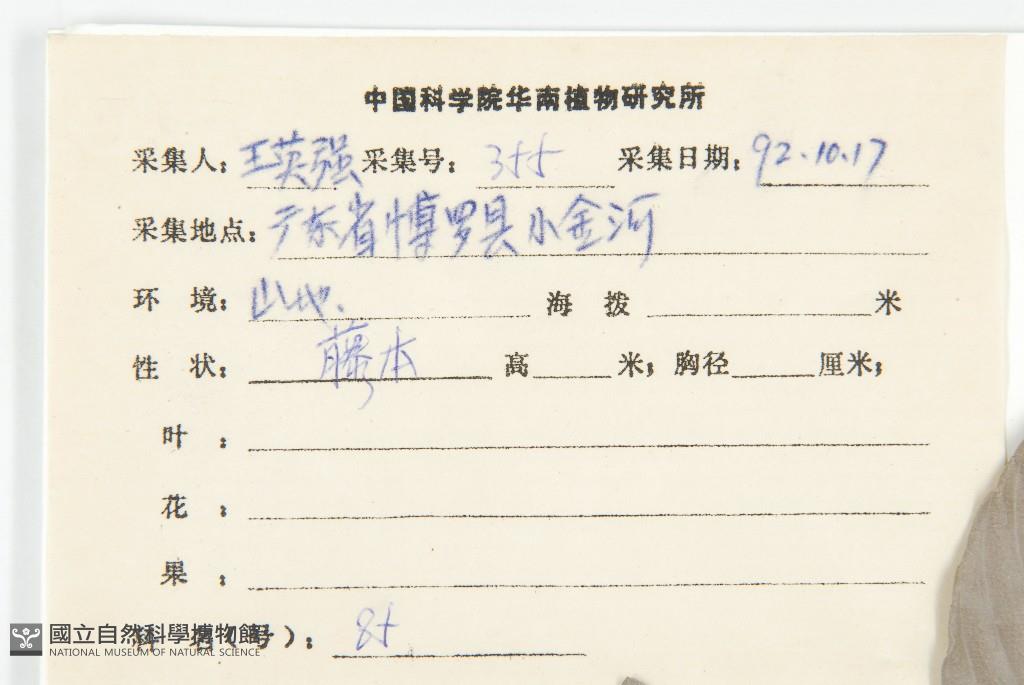 中国科学院华南植物研究所
采集人：王英强 采集号：355 采集日期：92.10.17
采集地点：广东省博罗县小金河
环 境：山地. 海 拨 米
性 状：藤本 高 米；胸径 厘米；
叶 ：
花 ：
果 ：
（号）：85
國立自然科學博物館
NATIONAL MUSEUM OF NATURAL SCIENCE